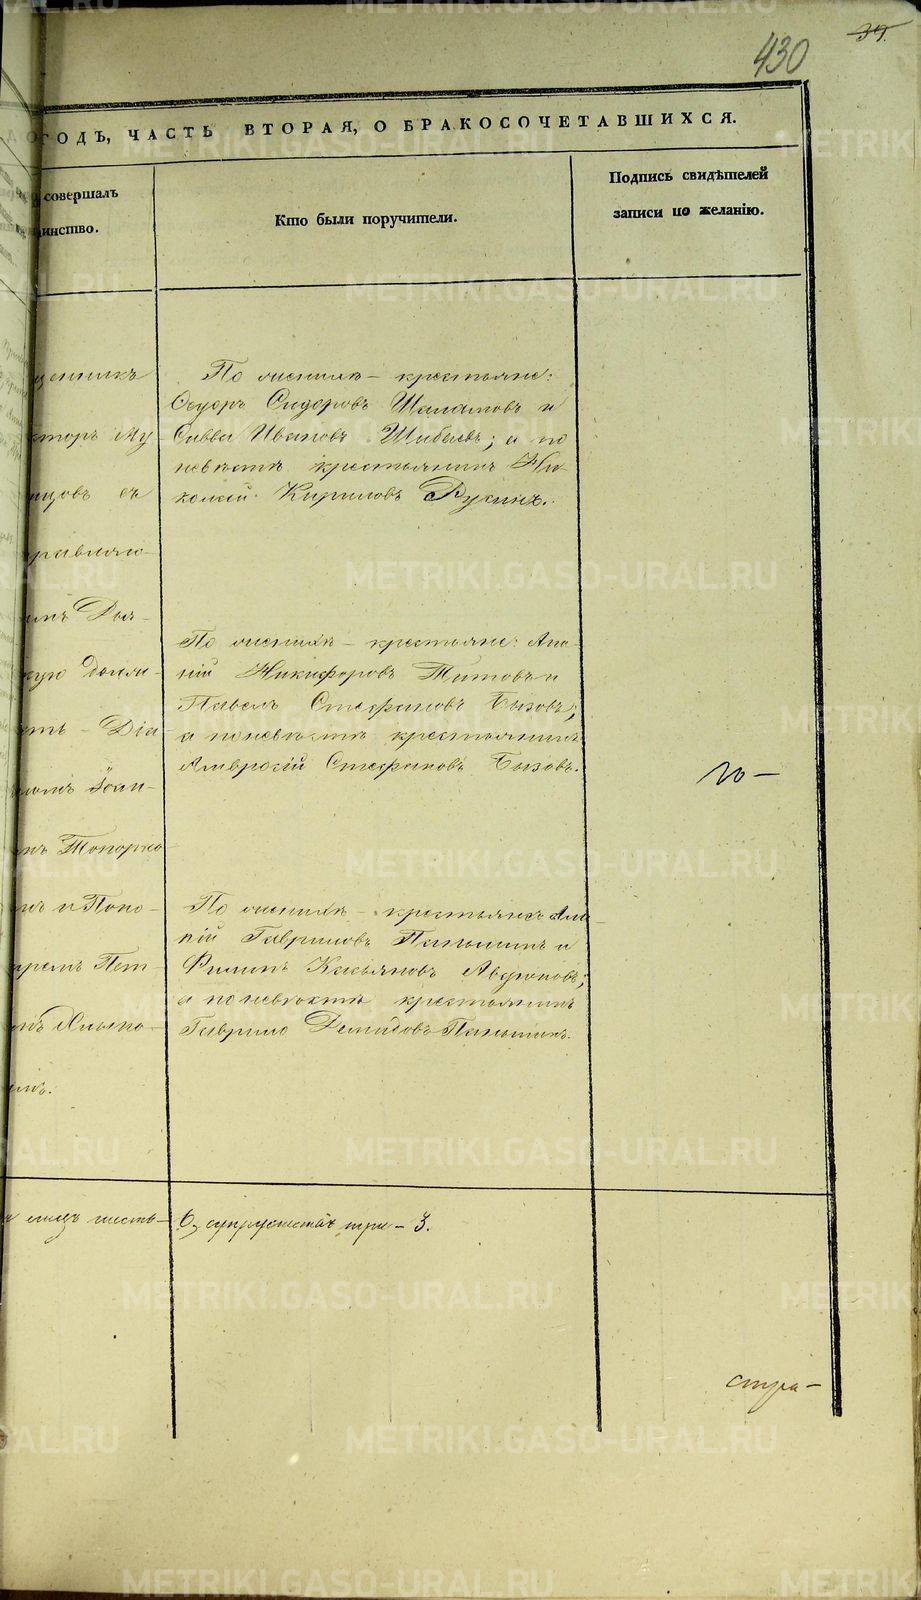 430
39.
ГОДЪ, ЧАСТЬ ВТОРАЯ, О БРАКОСОЧЕТАВШИХСЯ.
совершалъ
инство.
Кто были поручители.
Подпись свидѣтелей
записи по желанію.
щенникъ
кторъ Му
нцовъ съ
правляю
имъ Дья-
скую должн
сть - Діа
кономъ Іоан-
омъ Топорко
мъ и Поно-
маремъ Пет-
омъ
емъ.
По женихѣ - крестьяне:
Ѳедоръ Сидоровъ Шаламовъ и
Савва Ивановъ Шибаевъ; а по
невѣстѣ крестьянинъ Ни-
колай Кириловъ Русинъ.
По женихѣ - крестьяне: Ана-
ній Никифоровъ Титовъ и
Павелъ Стефановъ Бызовъ;
а по невѣстѣ крестьянинъ
Амвросій Стефановъ Бызовъ.
По женихѣ - крестьяне
пій Гавриловъ Паньшинъ и
Филипъ Касьяновъ Авдюковъ;
а по невѣстѣ крестьянинъ
Гаврило Демидовъ Паньшинъ.
лицъ шесть - 6, супружествъ три - 3.
METRIKI.GASO-URAL.RU